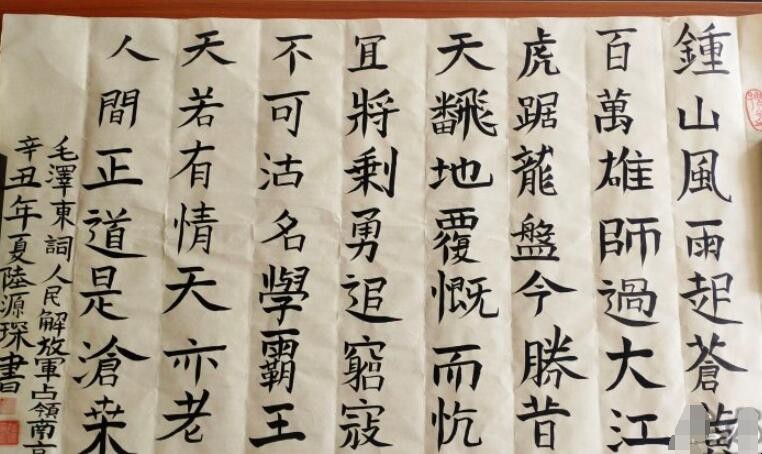 鍾山風雨起蒼
百萬雄師過大江
虎踞龍盤今勝昔
天飜地覆慨而忼
冝將剩勇追窮寇
不可沽名學霸王
天若有情天亦老
人間正道是滄桒
毛澤東詞人民解放軍占領南京
辛丑年夏陸源琛書